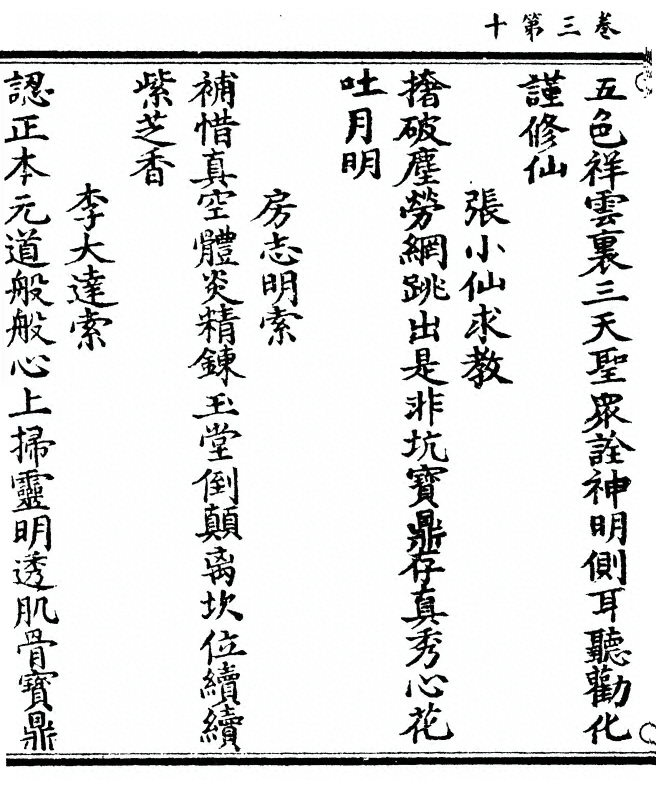 卷三第十
五色祥雲裏三天聖衆詮神明側耳聽勸化
謹修仙
張小仙求教
撦破塵勞網跳出是非坑寶鼎存真秀心花
吐月明
房志明索
補惜真空體炎精鍊玉堂倒顛离坎位續續
紫芝香
李大達索
認正本元道般般心上掃靈明透肌骨寶鼎